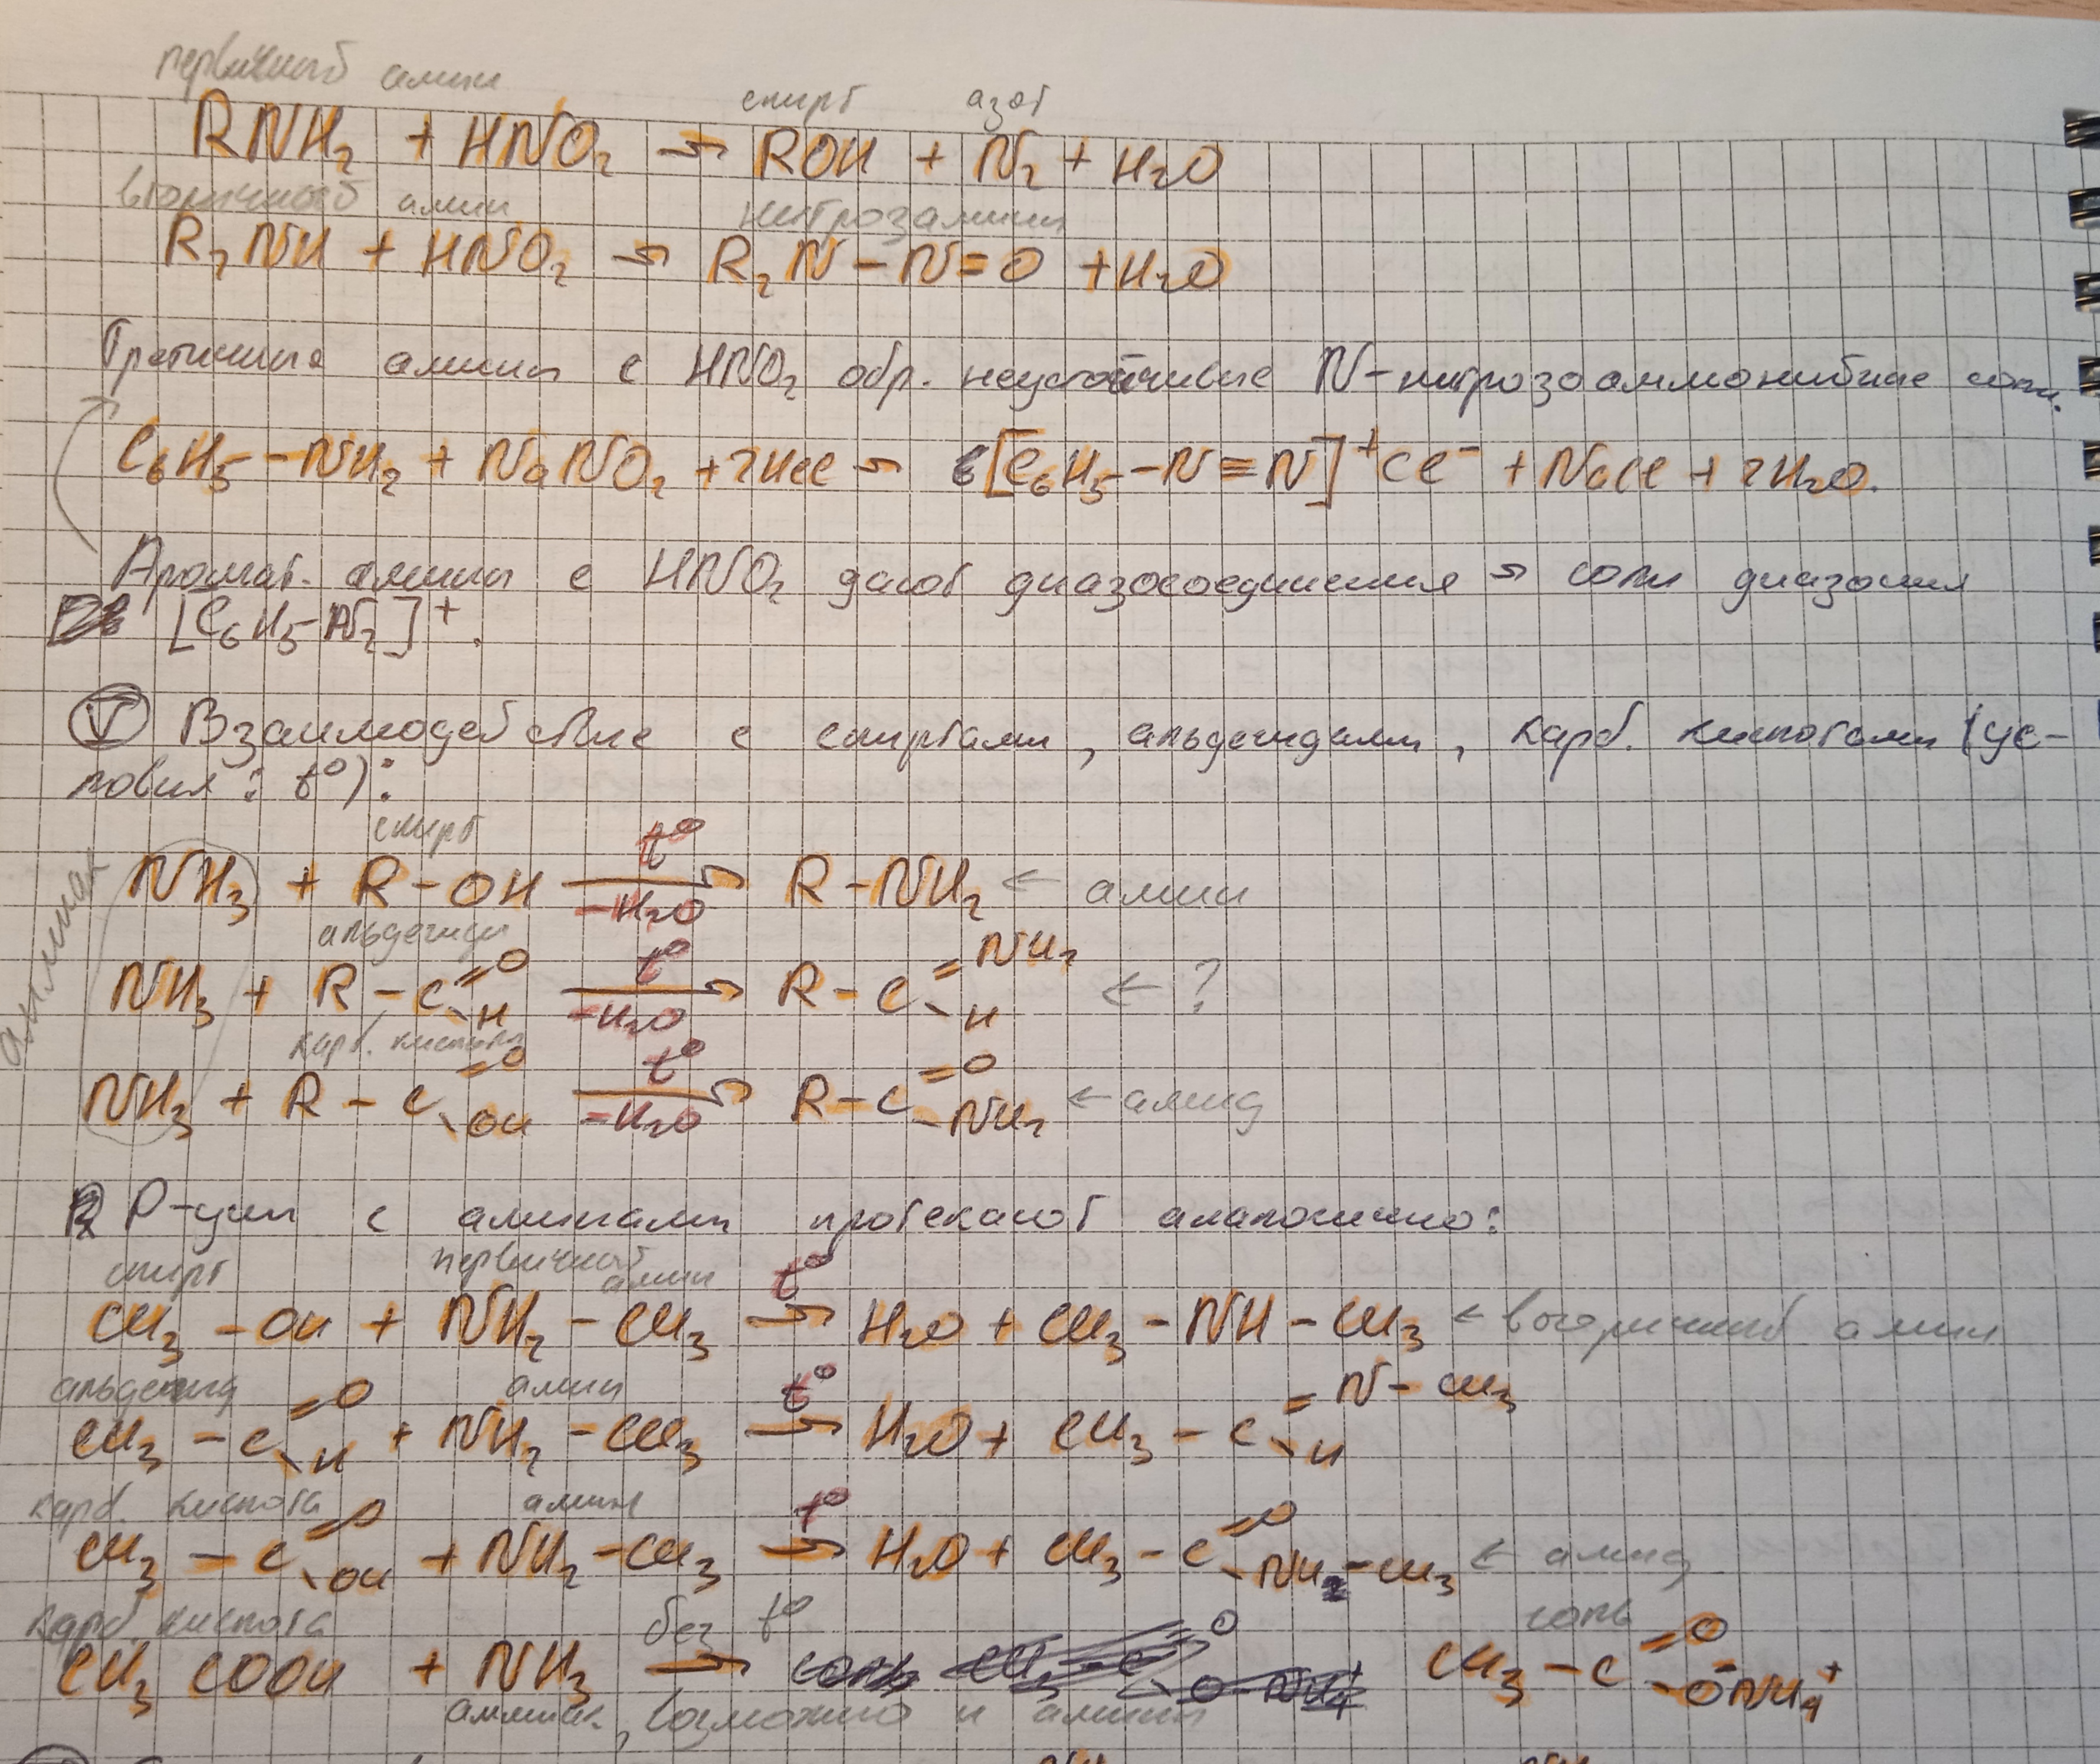 первичный амин спирт азот
RNH₂ + HNO₂ → ROH + N₂ + H₂O
вторичный амин нитрозамин
R₂NH + HNO₂ → R₂N–N=O + H₂O
Третичные амины с HNO₂ обр. неустойчивые N-нитрозоаммонийные соли.
C₆H₅–NH₂ + NaNO₂ + 2HCl → [C₆H₅–N≡N]⁺Cl⁻ + NaCl + 2H₂O.
Аромат. амины с HNO₂ дают диазосоединения → соли диазония
[C₆H₅–N₂]⁺.
V Взаимодействие с спиртами, альдегидами, карб. кислотами (ус-
ловия: t°):
аммиак
спирт
NH₃ + R–OH t° –H₂O → R–NH₂ ← амин
альдегид
NH₃ + R–C(=O)–H t° –H₂O → R–C(=NH₂)–H ← ?
карб. кислота
NH₃ + R–C(=O)–OH t° –H₂O → R–C(=O)–NH₂ ← амид
Р-ции с аминами протекают аналогично:
спирт первичный амин t°
CH₃–OH + NH₂–CH₃ → H₂O + CH₃–NH–CH₃ ← вторичный амин
альдегид амин t°
CH₃–C(=O)–H + NH₂–CH₃ → H₂O + CH₃–C(=N–CH₃)–H
карб. кислота амин t°
CH₃–C(=O)–OH + NH₂–CH₃ → H₂O + CH₃–C(=O)–NH–CH₃ ← амид
карб. кислота без t° соль
CH₃COOH + NH₃ → CH₃–C(=O)–O⁻NH₄⁺
аммиак, возможно и амин